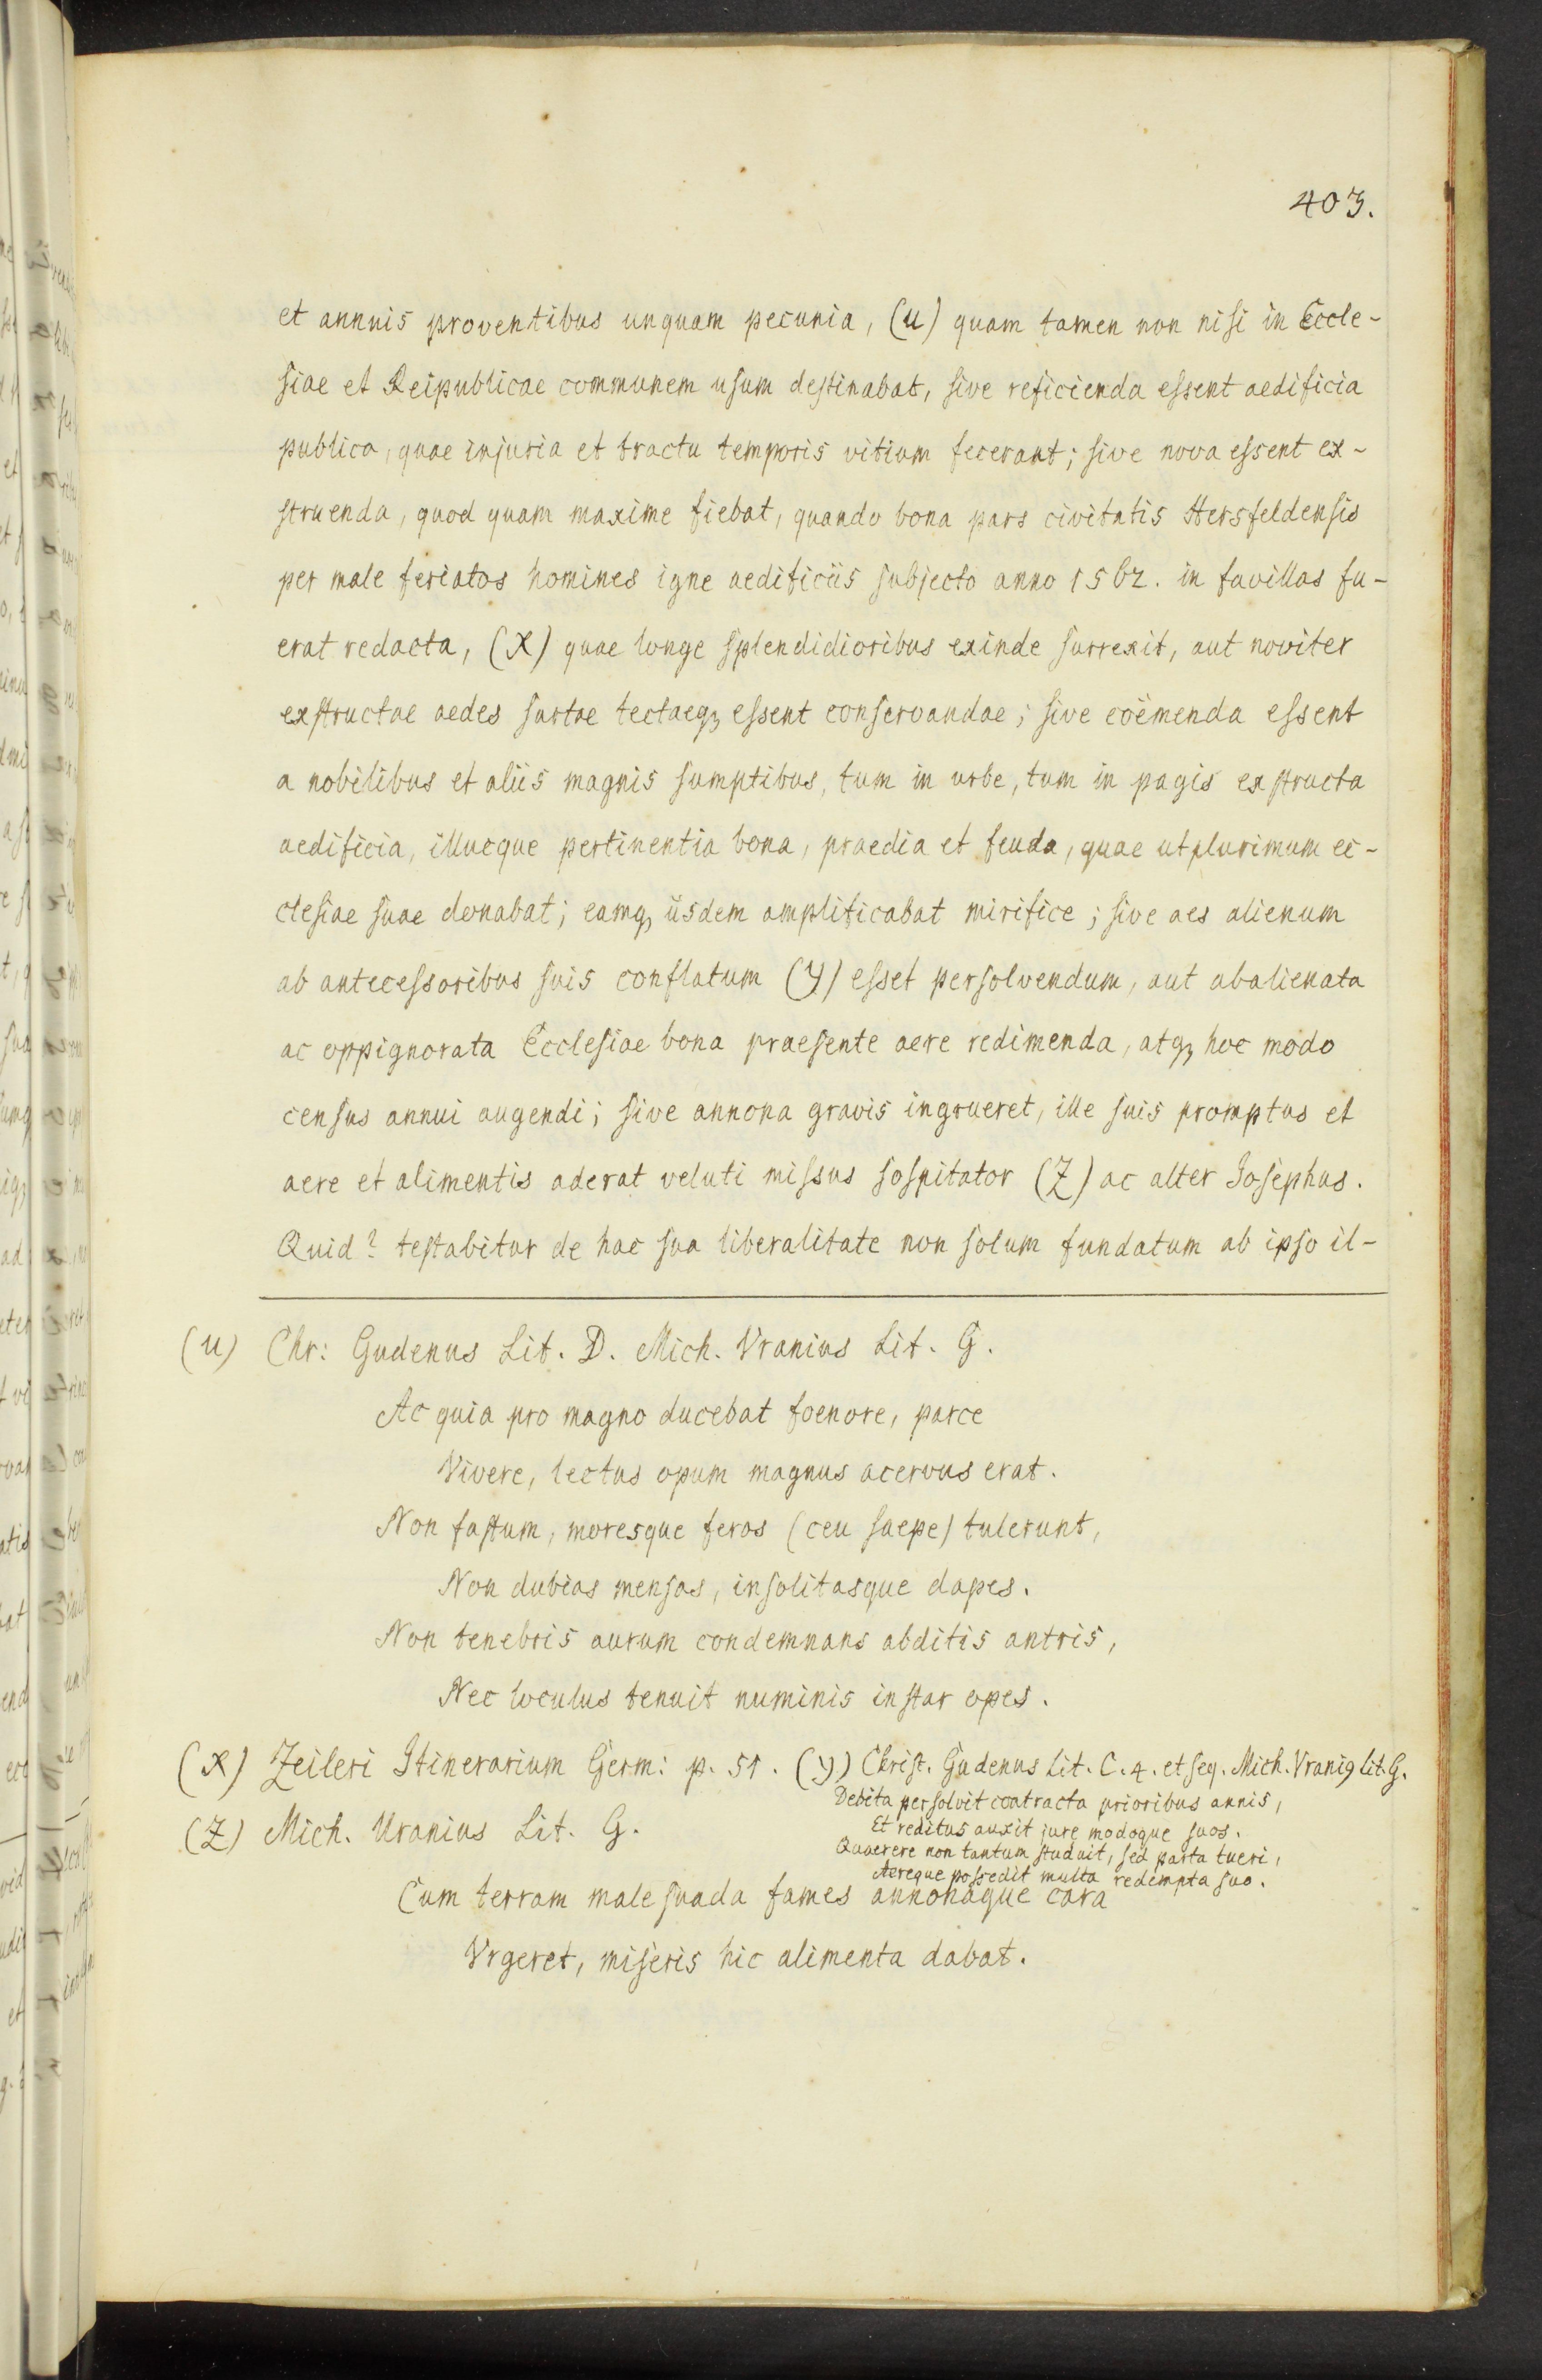 403.
et annuis proventibus unquam pecunia, (u) quam tamen non nisi in Eccle-
siae et Reipublicae communem usum destinabat, sive reficienda essent aedificia
publica, quae injuria et tractu temporis vitium fecerant; sive nova essent ex-
struenda, quod quam maxime fiebat, quando bona pars civitatis Hersfeldensis
per male feriatos homines igne aedificiis subjecto anno 1562. in favillas fu-
erat redacta, (x) quae longe splendidioribus exinde surrexit, aut noviter
exstructae aedes sartae tectaeq3 essent conservandae; sive coëmenda essent
a nobilibus et aliis magnis sumptibus, tum in urbe, tum in pagis exstructa
aedificia, illucque pertinentia bona, praedia et feuda, quae utplurimum ec-
clesiae suae donabat; eamq3 iisdem amplificabat mirifice; sive aes alienum
ab antecessoribus suis conflatum (y) esset persolvendum, aut abalienata
ac oppignorata Ecclesiae bona praesente aere redimenda, atq3 hoc modo
census annui augendi; sive annona gravis ingrueret, ille suis promptus et
aere et alimentis aderat veluti missus sospitator (Z) ac alter Josephus.
Quid? testabitur de hac sua liberalitate non solum fundatum ab ipso il-
(u) Chr: Gudenus Lit. D. Mich. Vranius Lit. G.
Ac quia pro magno ducebat foenore, parce
Vivere, lectus opum magnus acervus erat.
Non fastum, moresque feros (ceu saepe) tulerunt,
Non dubias mensas, insolitasque dapes.
Non tenebris aurum condemnans abditis antris,
Nec loculus tenuit numinis instar opes.
(x) Zeileri Itinerarium Germ: p. 51. (y) Christ. Gudenus Lit. C. 4. et seq. Mich. Vraniꝯ lit. G.
Debita persolvit contracta prioribus annis,
Et reditus auxit jure modoque suos.
Quaerere non tantum studuit, sed parta tueri,
Aereque possedit multa redempta suo.
(Z) Mich. Uranius Lit. G.
Cum terram male suada fames annonaque cara
Vrgeret, miseris hic alimenta dabat.